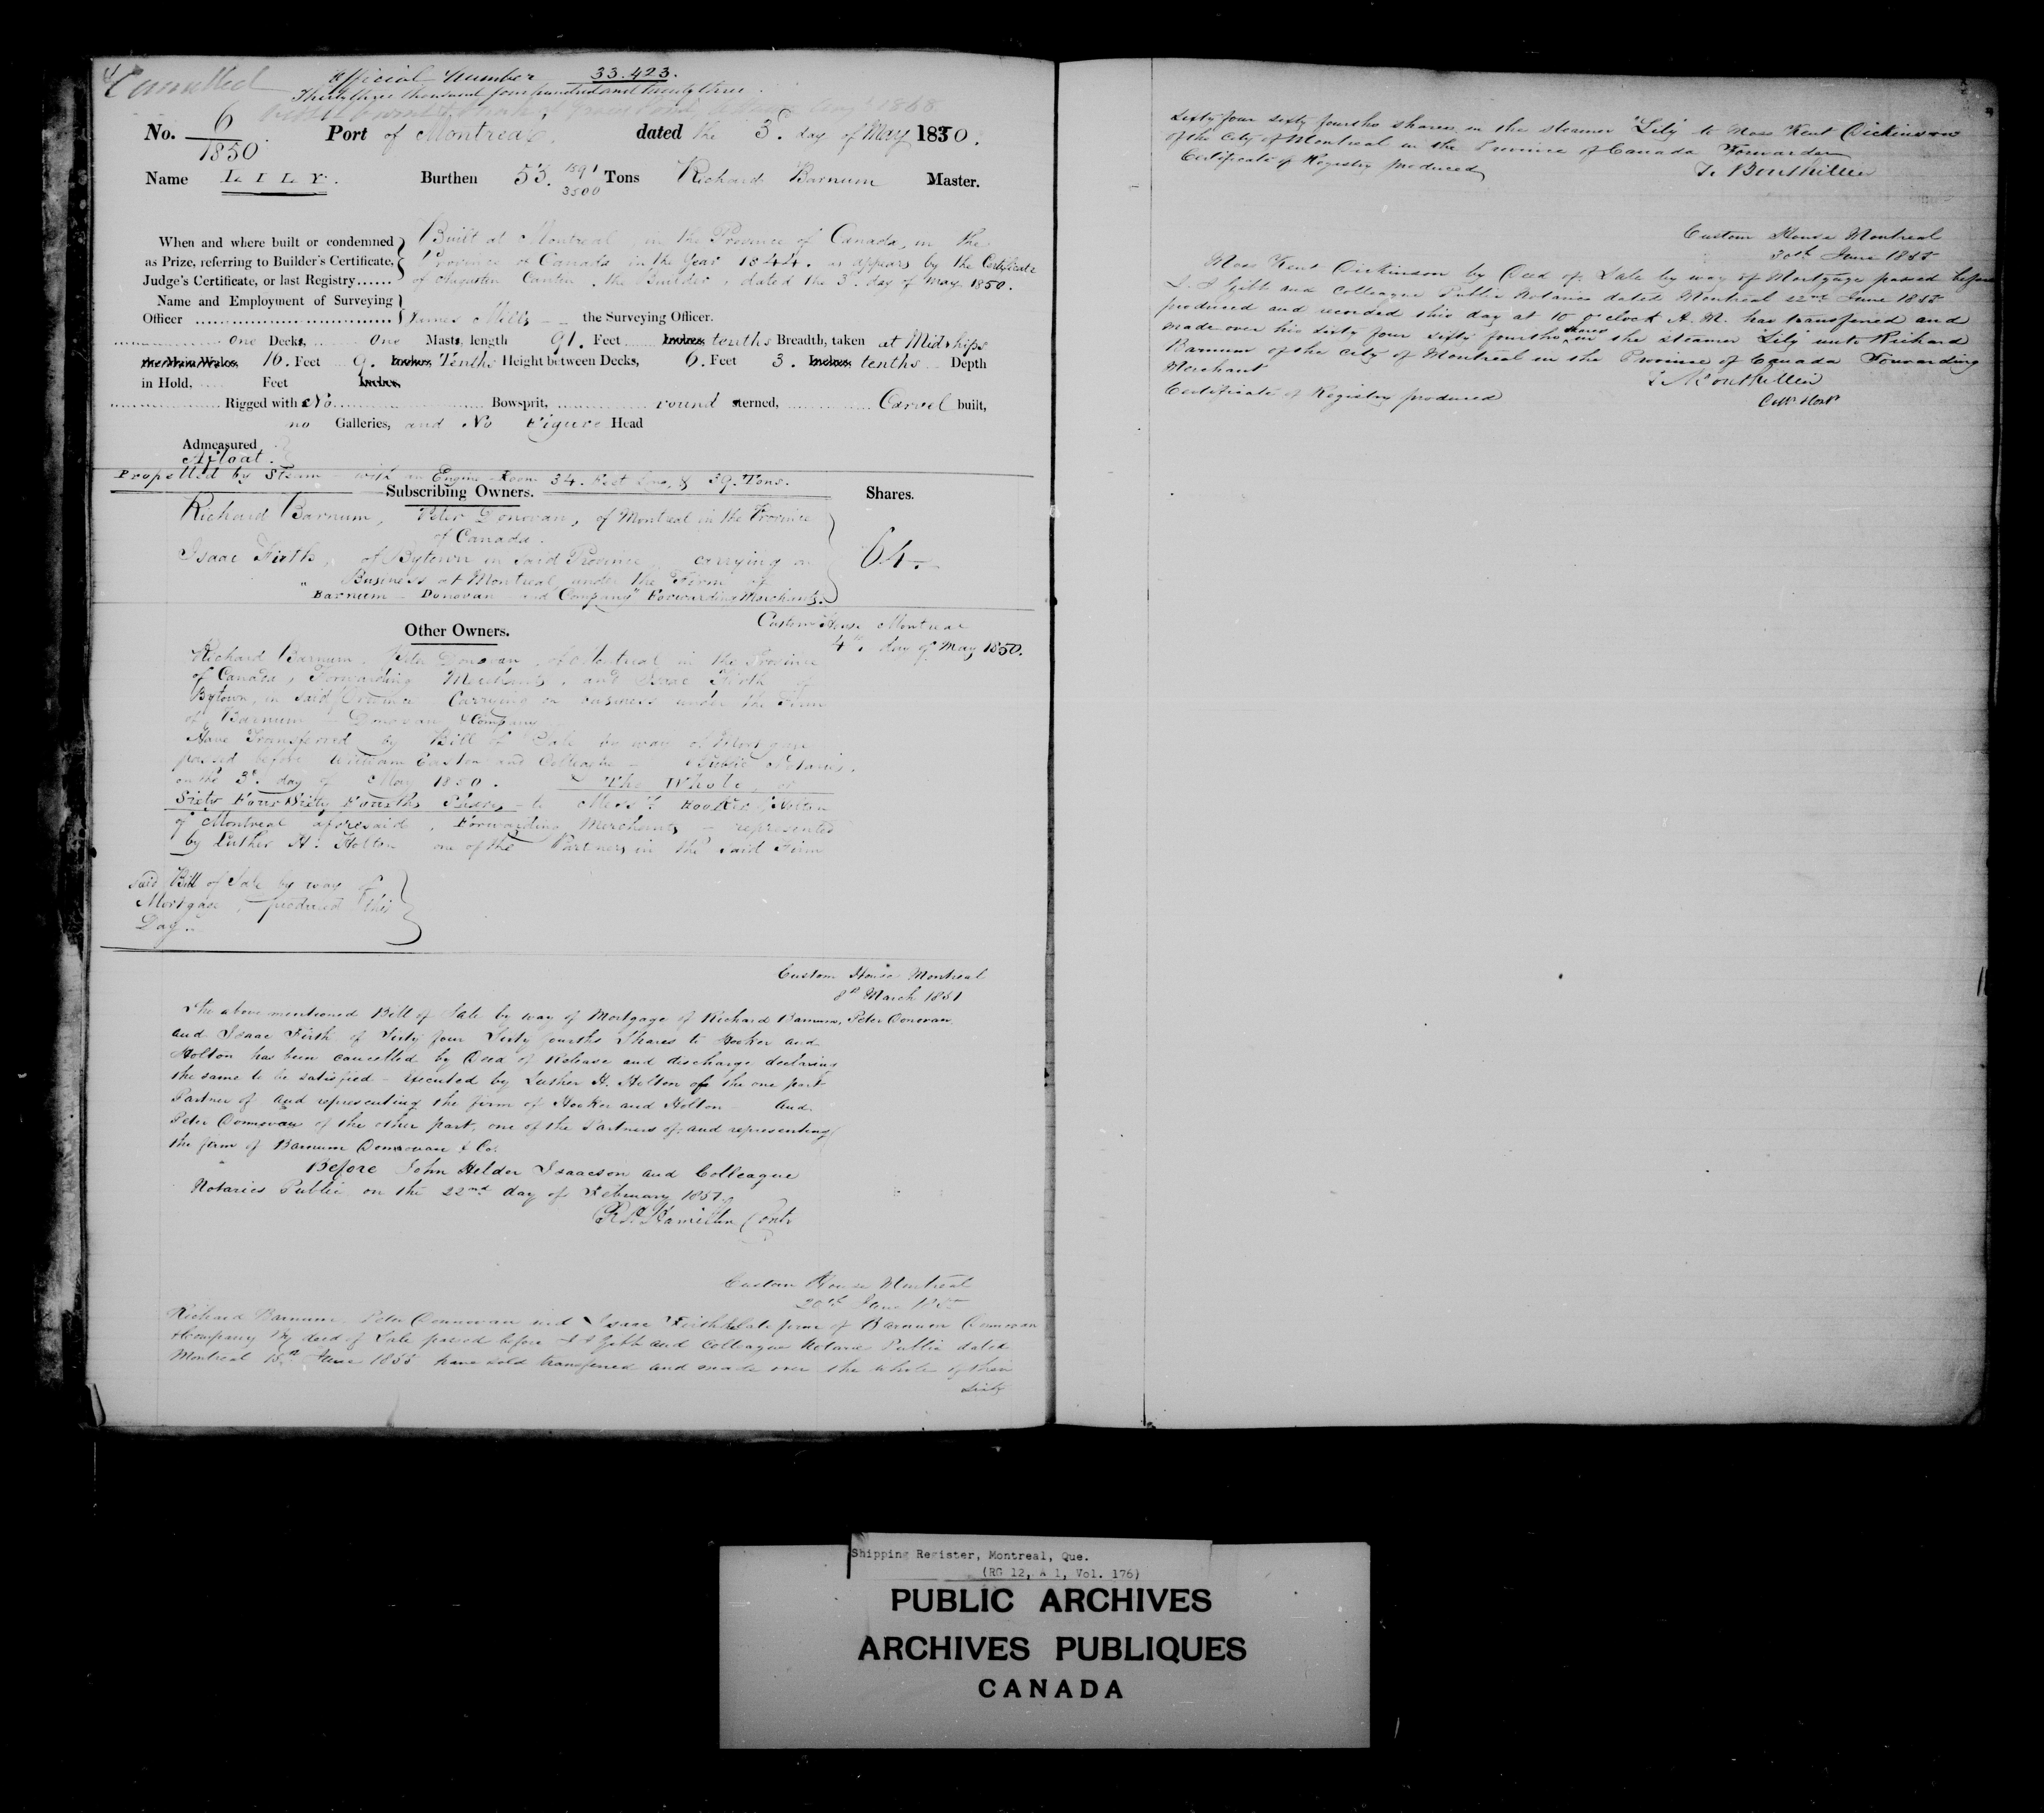 Cancelled
Official Number 33.423.
Thirty three thousand four hundred and twenty three.
No. 6/1850. Port of Montreal, dated the 3d. day of May 1850.
Name LILY. Burthen 53. 1891/3500 Tons Richard Barnum Master.
When and where built or condemned Built at Montreal, in the Province of Canada, in the
as Prize, referring to Builder's Certificate, Province of Canada in the Year 1844. as appears by the Certificate
Judge's Certificate, or last Registry...... of Augustin Cantin, the Builder, dated the 3d. day of May 1850.
Name and Employment of Surveying
Officer James Mills the Surveying Officer.
One Decks, One Masts, length 91. Feet Inches, tenths Breadth, taken at Midships
the Main Wales, 16. Feet 9. Inches, Tenths Height between Decks, 6. Feet 3. Inches, tenths Depth
in Hold, Feet Inches,
Rigged with No Bowsprit, round sterned, Carvel built,
no Galleries, and No Figure Head
Admeasured
Afloat.
Propelled by Steam with an Engine Room 34. Feet Long, & 39. Tons.
Subscribing Owners. Shares.
Richard Barnum, Peter Donovan, of Montreal in the Province
of Canada.
Isaac Firth, of Bytown in said Province carrying on 64.
Business at Montreal, under the Firm of
"Barnum Donovan and Company" Forwarding Merchants.
Custom House Montreal
Other Owners. 4th. day of May 1850.
Richard Barnum, Peter Donovan, of Montreal, in the Province
of Canada, Forwarding Merchants, and Isaac Firth of
Bytown, in said Province Carrying on business under the Firm
of Barnum Donovan & Company
Have Transferred by Bill of Sale by way of Mortgage
passed before William Easton and Colleague - Public Notaries,
on the 3d. day of May 1850. The Whole, or
Sixty Four Sixty Fourths Shares - to Messrs. Hooker & Holton
of Montreal aforesaid, Forwarding Merchants - represented
by Luther H. Holton one of the Partners in the said Firm
said Bill of Sale by way of
Mortgage, produced this
Day..
Custom House Montreal
8th March 1851
The above mentioned Bill of Sale by way of Mortgage of Richard Barnum, Peter Donovan
and Isaac Firth of Sixty four Sixty fourths Shares to Hooker and
Holton has been cancelled by Deed of Release and discharge declaring
the same to be satisfied - Executed by Luther H. Holton of the one part
Partner of and representing the firm of Hooker and Holton and
Peter Donnovan of the other part, one of the Partners of, and representing
the firm of Barnum Donnovan & Co.
Before John Helder Isaacson and Colleague
Notaries Public on the 22nd day of February 1851.
Hamilton Contr
Custom House Montreal
20th June 1855
Richard Barnum, Peter Donnovan and Isaac Firth late firm of Barnum Donnovan
& Company By deed of Sale passed before I J Gibb and Colleague Notaries Public dated
Montreal 15th June 1855 have sold transferred and made over the whole of their
Sixty
Sixty four sixty fourths shares in the steamer "Lily" to Moss Kent Dickinson
of the City of Montreal in the Province of Canada Forwarder
Certificate of Registry produced
T. Bouthillier
Custom House Montreal
30th June 1855
Moss Kent Dickinson by Deed of Sale by way of Mortgage passed before
I. J Gibb and Colleague Public Notaries dated Montreal 22nd June 1855
produced and recorded this day at 10 o'clock A.M. has transferred and
made over his sixty four sixty fourths shares in the steamer Lily unto Richard
Barnum of the City of Montreal in the Province of Canada Forwarding
Merchant
T. Bouthillier
Certificate of Registry produced
Shipping Register, Montreal, Que.
(RG 12, A 1, Vol. 176)
PUBLIC ARCHIVES
ARCHIVES PUBLIQUES
CANADA